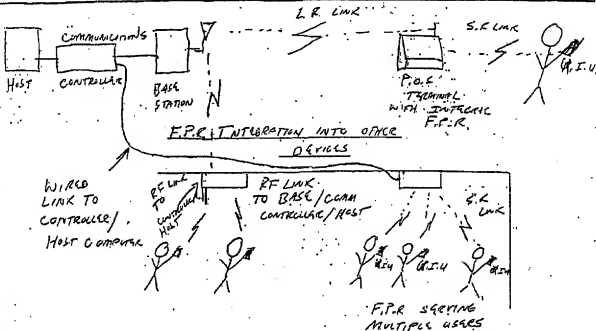 L.R. LINK
S.R. LINK
COMMUNICATIONS
HOST
CONTROLLER
BASE
STATION
P.O.S
TERMINAL
WITH INTEGRAL
F.P.R.
R.I.U.
F.P.R. INTEGRATION INTO OTHER
DEVICES
WIRED
LINK TO
CONTROLLER/
HOST COMPUTER
RF LINK
TO
CONTROLLER
HOST
RF LINK
TO BASE/COMM
CONTROLLER/HOST
S.R
LINK
R.I.U
R.I.U
R.I.U
F.P.R SERVING
MULTIPLE USERS